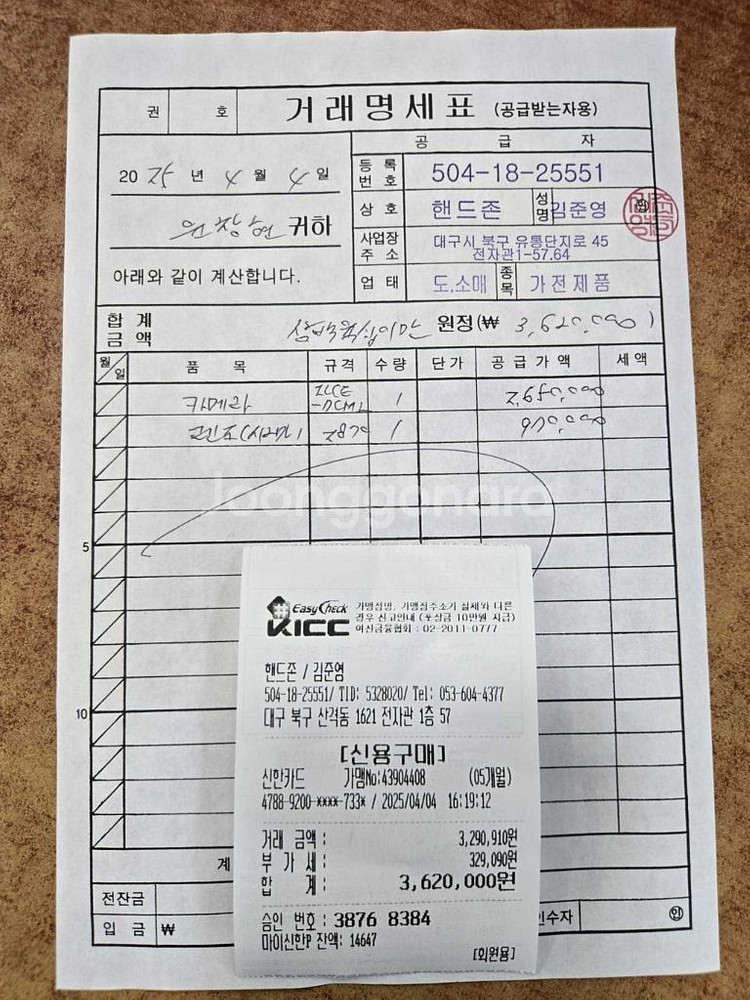 권 호 거래명세표 (공급받는자용)
공 급 자
2025 년 4 월 4 일
등록번호 504-18-25551
귀하
상호 핸드존 성명 김준영 ㊞
사업장주소 대구시 북구 유통단지로 45
전자관1-57.64
아래와 같이 계산합니다.
업태 도.소매 종목 가전제품
합계금액 삼백육십이만 원정(₩ 3,620,000 )
월/일 품 목 규격 수량 단가 공급가액 세액
카메라 ILCE 1
1
5
10
joonggonara
EasyCheck
KICC
가맹점명, 가맹점주소가 실제와 다른
경우 신고안내 (포상금 10만원 지급)
여신금융협회 : 02-2011-0777
핸드존 / 김준영
504-18-25551/ TID: 5328020/ Tel: 053-604-4377
대구 북구 산격동 1621 전자관 1층 57
[신용구매]
신한카드 가맹No:43904408 (05개월)
4788-9200-****-733* / 2025/04/04 16:19:12
거래 금액 : 3,290,910원
부 가 세 : 329,090원
합 계 : 3,620,000원
승인 번호 : 3876 8384
마이신한P 잔액: 14647
[회원용]
계
전잔금
입 금 ₩ 인수자 ㊞